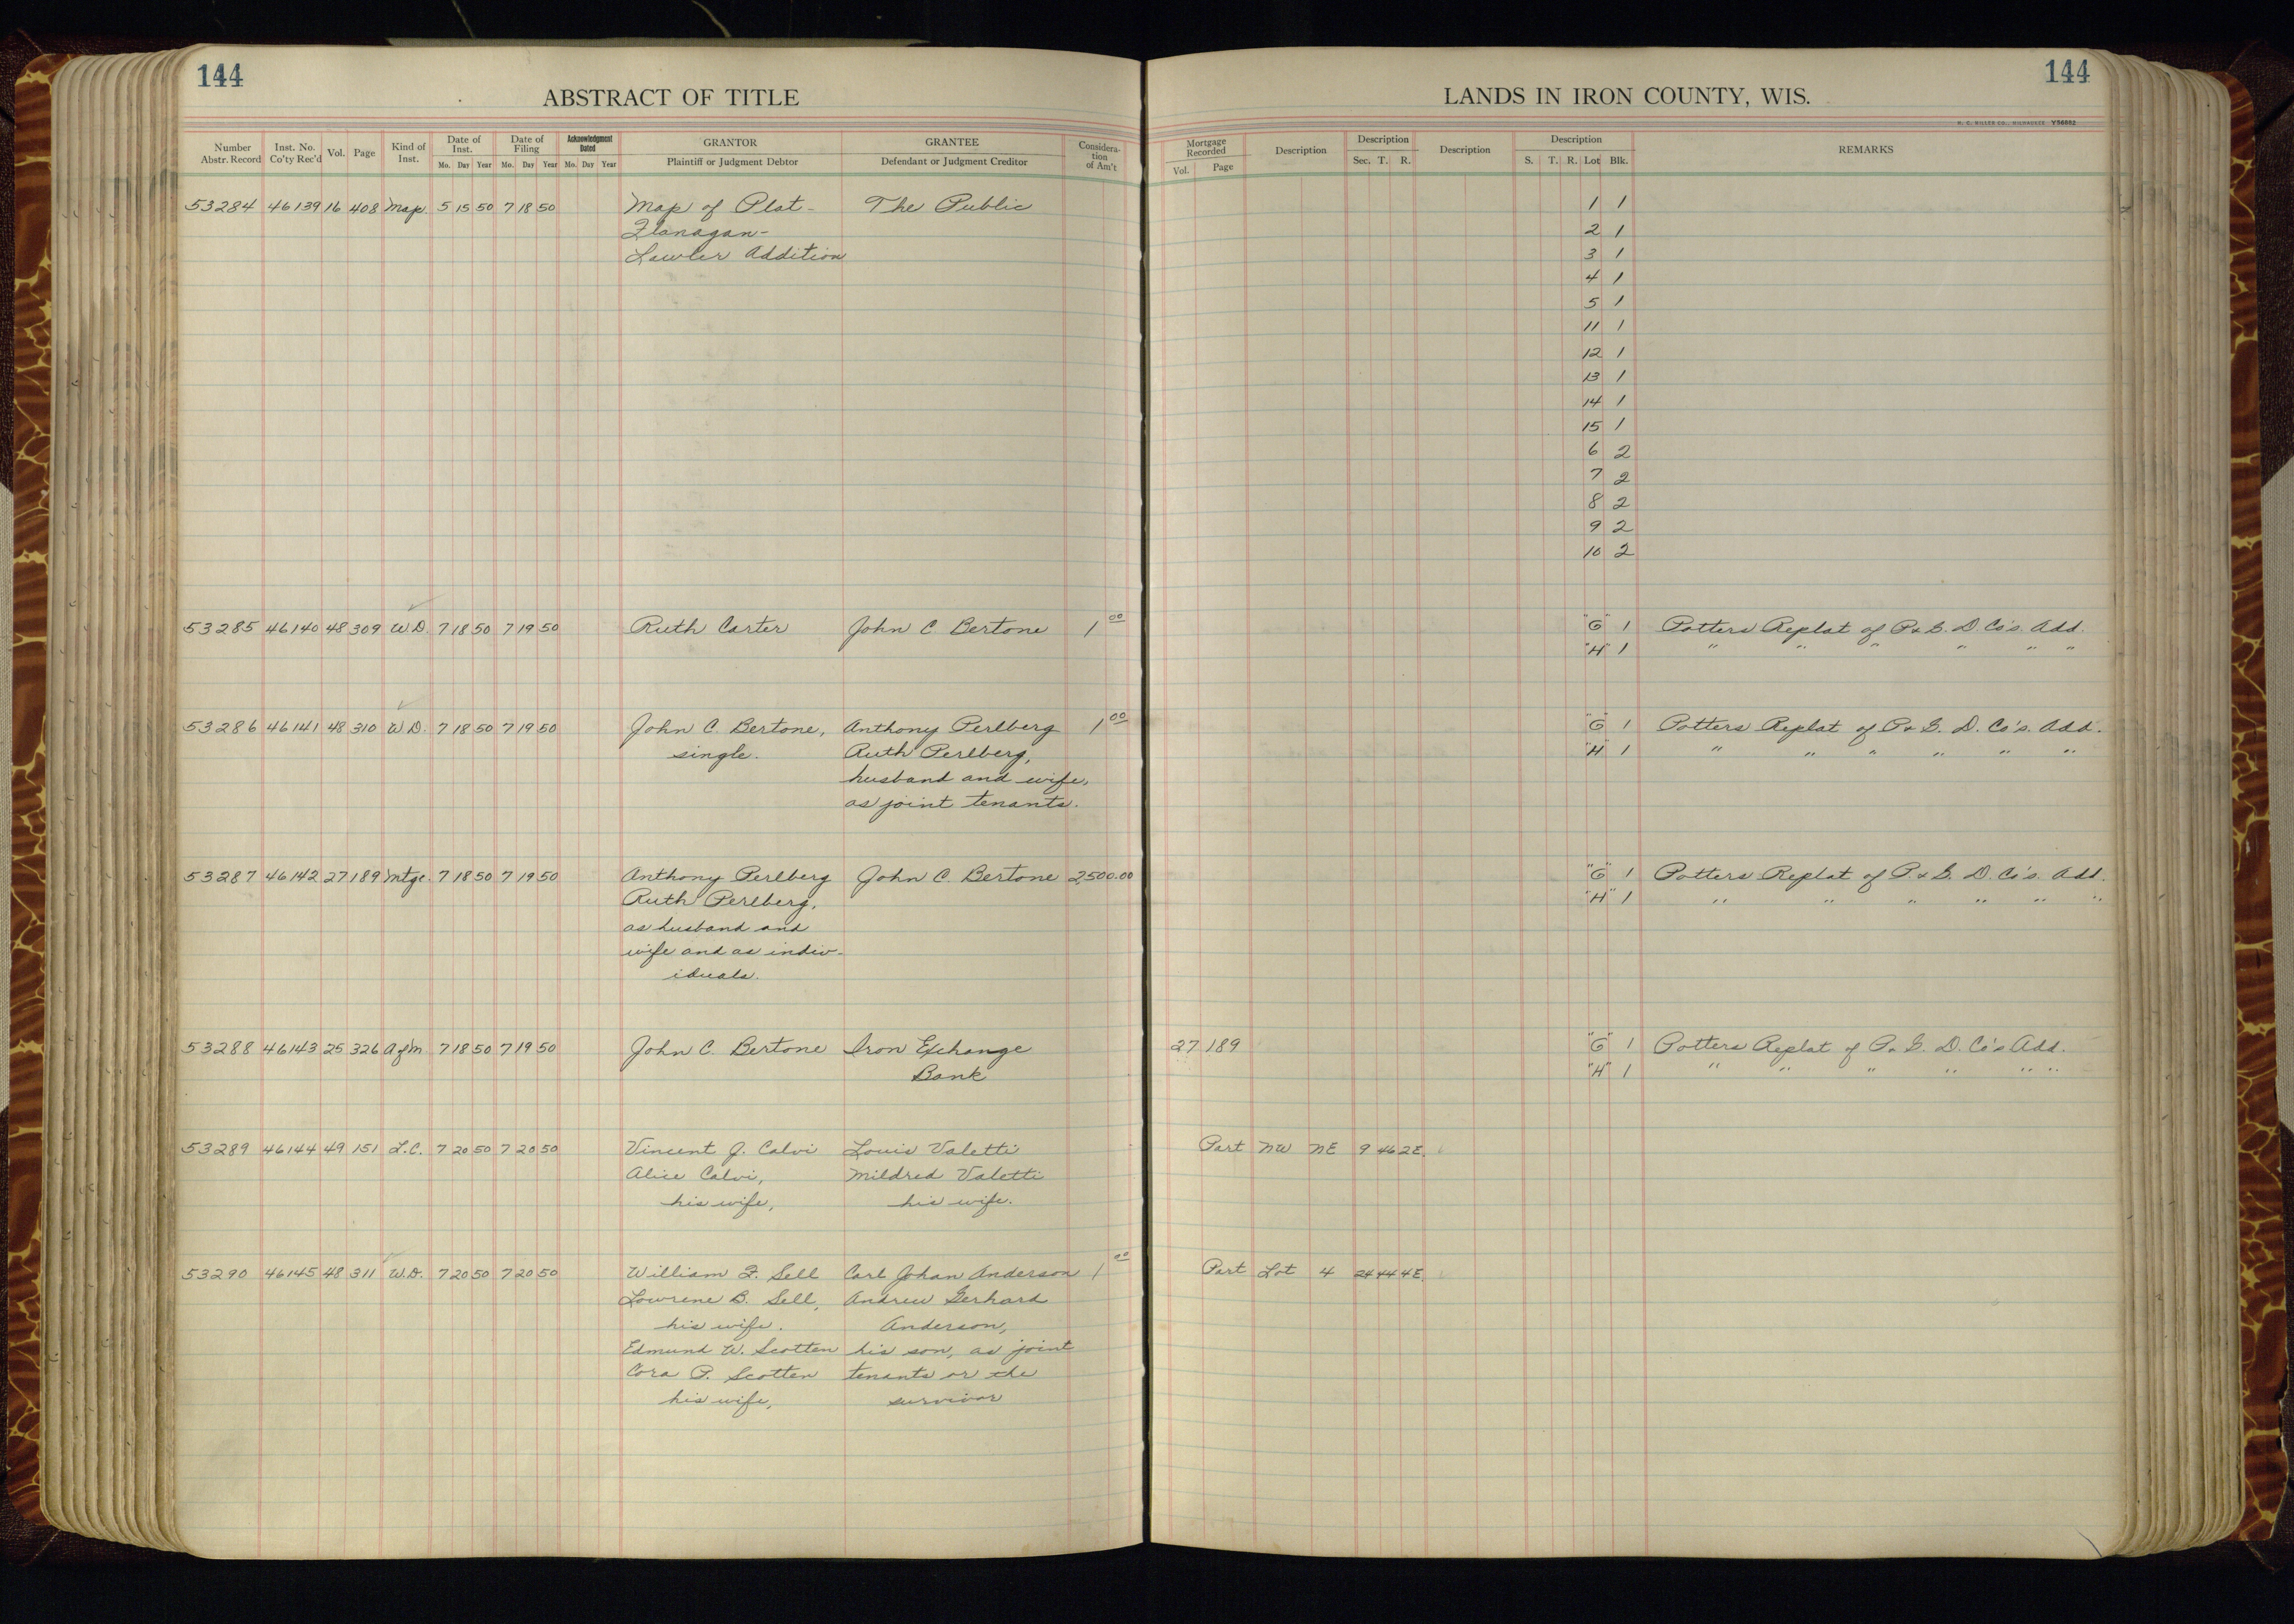 144
ABSTRACT OF TITLE
Number Abstr. Record
Inst. No. Co'ty Rec'd
Vol.
Page
Kind of Inst.
Date of Inst.
Mo. Day Year
Date of Filing
Mo. Day Year
Acknowledgment Dated
Mo. Day Year
GRANTOR
Plaintiff or Judgment Debtor
GRANTEE
Defendant or Judgment Creditor
Considera-
tion
of Am't
53284 46139 16 408 Map. 5 15 50 7 18 50 Map of Plat- The Public
Flanagan-
Lawler Addition
53285 46140 48 309 W.D. 7 18 50 7 19 50 Ruth Carter John C. Bertone 1 00
53286 46141 48 310 W.D. 7 18 50 7 19 50 John C. Bertone, Anthony Perlberg 1 00
single. Ruth Perlberg,
husband and wife,
as joint tenants.
53287 46142 27 189 Mtge. 7 18 50 7 19 50 Anthony Perlberg John C. Bertone 2,500.00
Ruth Perlberg,
as husband and
wife and as indiv-
iduals.
53288 46143 25 326 Asg'm 7 18 50 7 19 50 John C. Bertone Iron Exchange
Bank
53289 46144 49 151 L.C. 7 20 50 7 20 50 Vincent J. Calvi Louis Valetti
Alice Calvi, Mildred Valetti
his wife, his wife.
53290 46145 48 311 W.D. 7 20 50 7 20 50 William F. Sell Carl Johan Anderson 1 00
Lowrene B. Sell, Andrew Gerhard
his wife. Anderson,
Edmund W. Scotten his son, as joint
Cora P. Scotten tenants or the
his wife, survivor
144
LANDS IN IRON COUNTY, WIS.
H. C. MILLER CO., MILWAUKEE Y56882
Mortgage Recorded
Vol. Page
Description
Description
Sec. T. R.
Description
Description
S. T. R. Lot Blk.
REMARKS
1 1
2 1
3 1
4 1
5 1
11 1
12 1
13 1
14 1
15 1
6 2
7 2
8 2
9 2
10 2
"G" 1 Potters Replat of P. & G. D. Co's. Add.
"H" 1 " " " " " "
"G" 1 Potters Replat of P. & G. D. Co's. Add.
"H" 1 " " " " " "
"G" 1 Potters Replat of P. & G. D. Co's. Add.
"H" 1 " " " " " "
27 189 "G" 1 Potters Replat of P. & G. D. Co's Add.
"H" 1 " " " " " "
Part NW NE 9 46 2E.
Part Lot 4 24 44 4E.